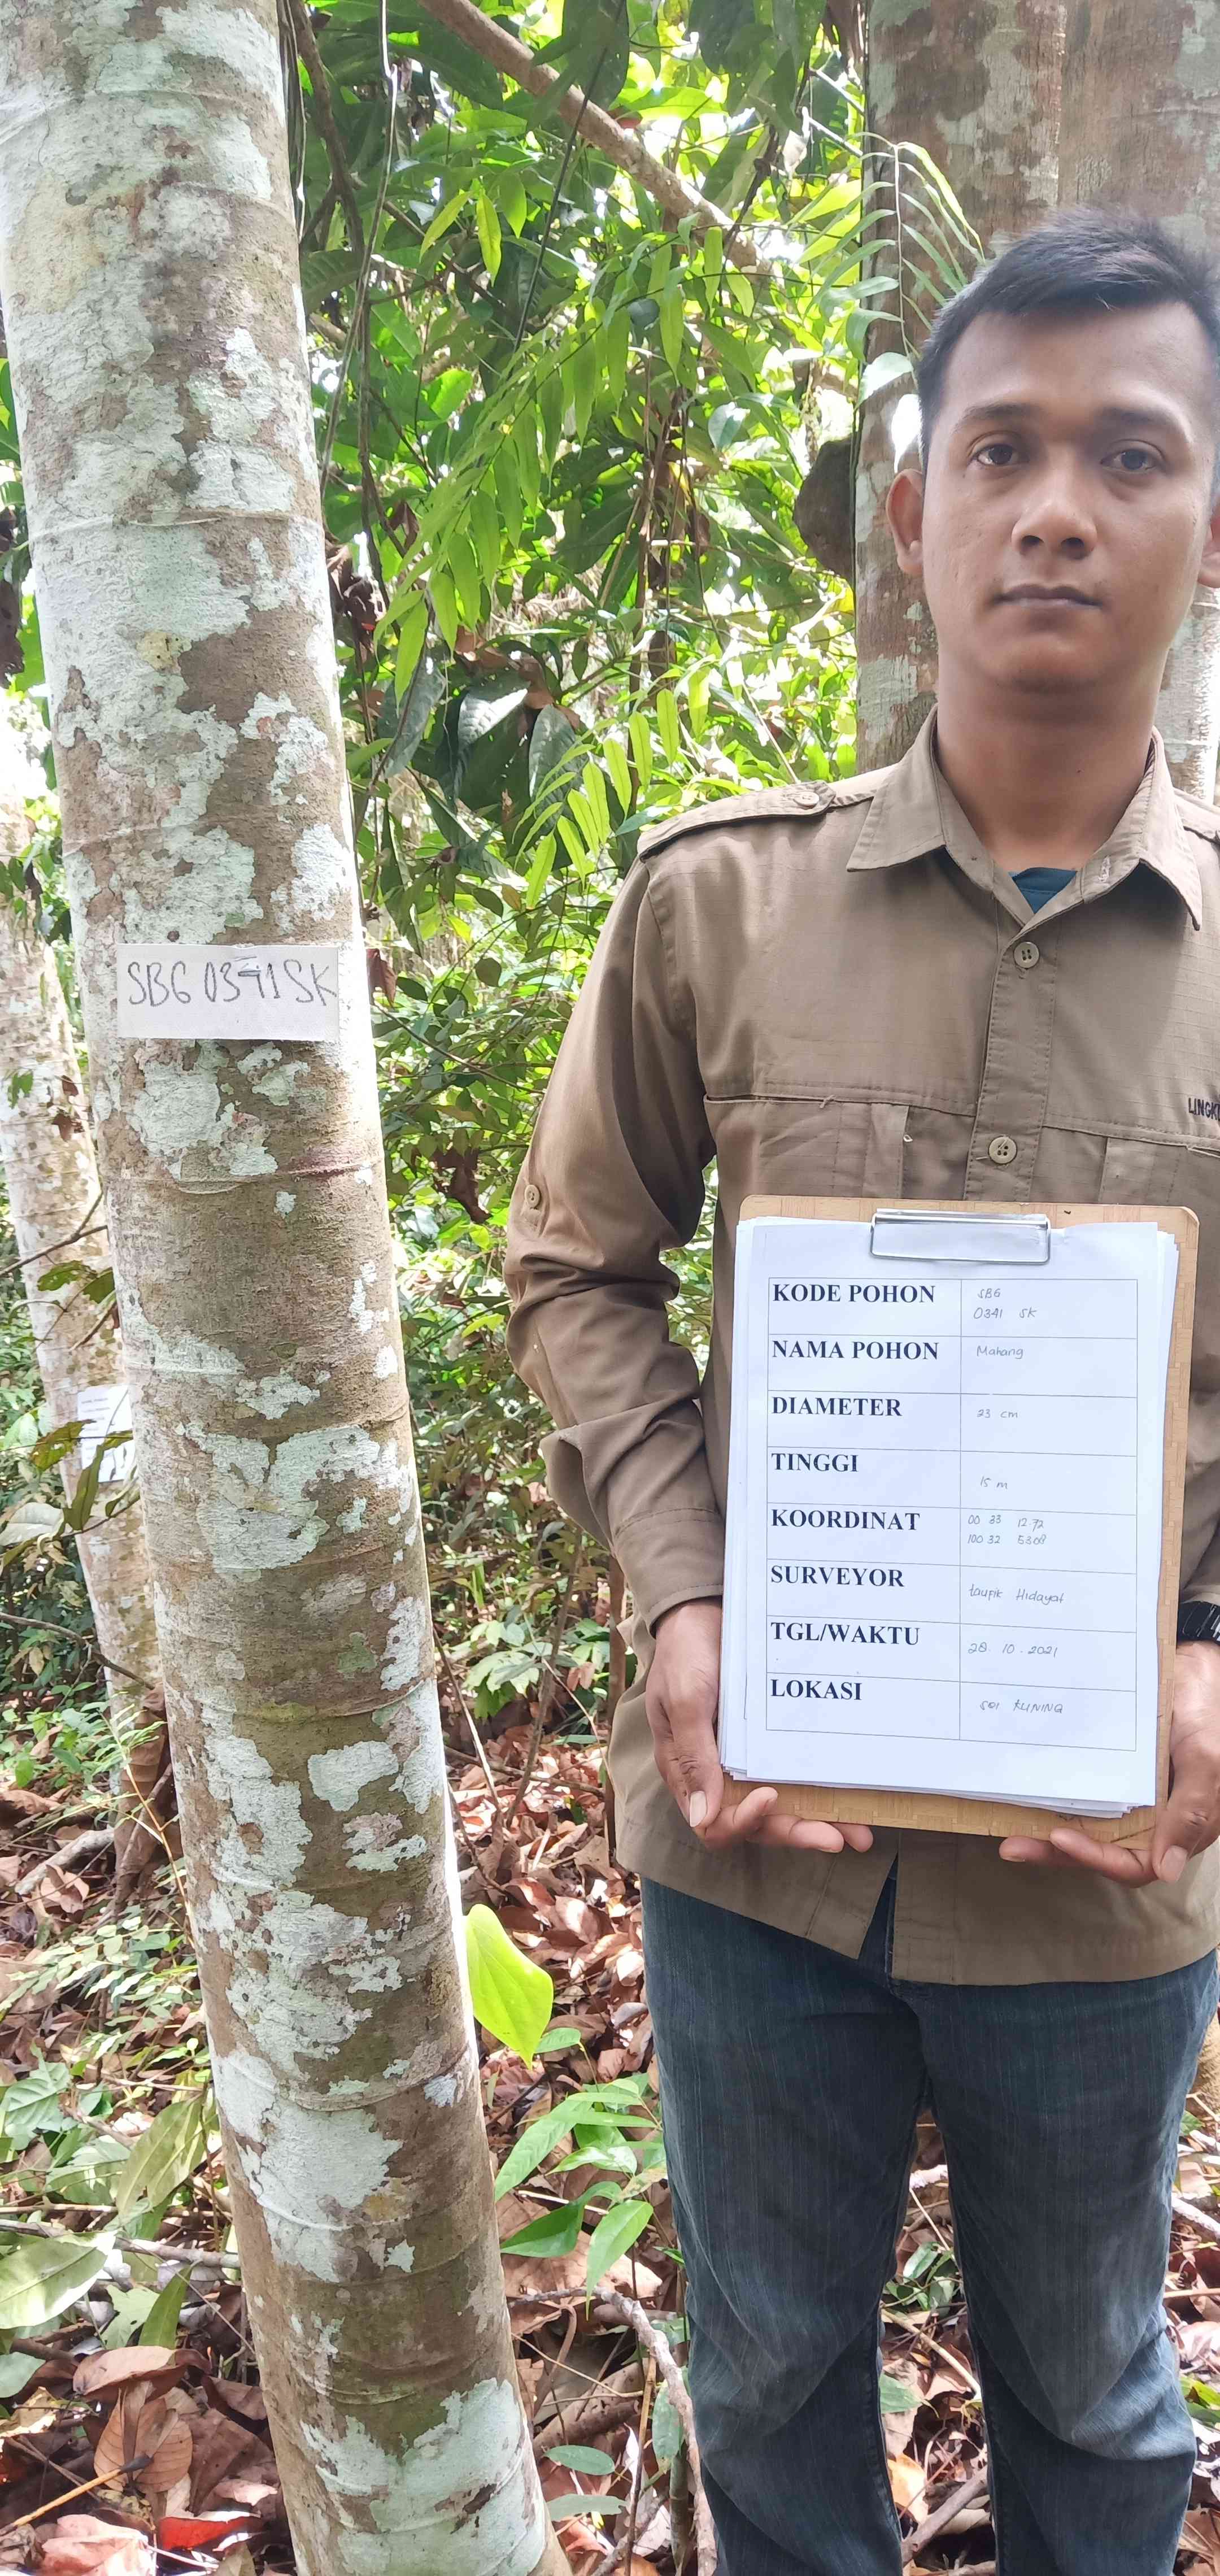 SBG 0341 SK
LINGK
KODE POHON SBG
0341 SK
NAMA POHON Mahang
DIAMETER 23 cm
TINGGI 15 m
KOORDINAT 00 33 12.72
100 32 53.08
SURVEYOR taufik Hidayat
TGL/WAKTU 28. 10. 2021
LOKASI SEI KUNING